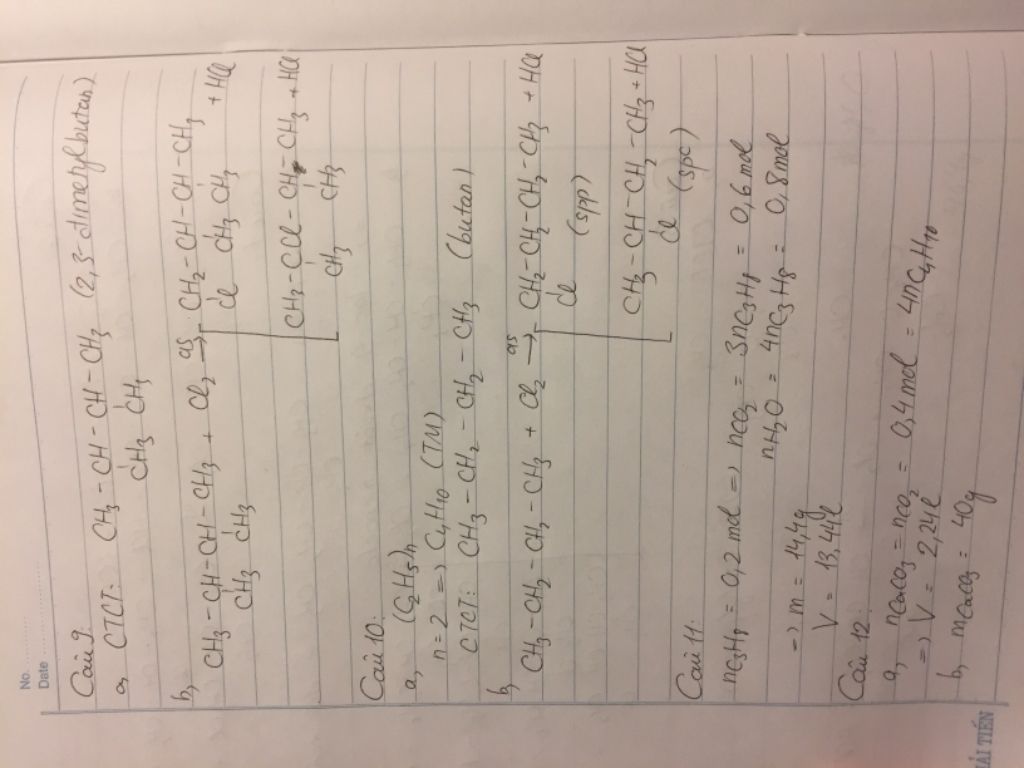 No.
Date
Câu 9.
a, CTCT: CH3 - CH - CH - CH3 (2,3-dimetylbutan)
CH3 CH3
b,
CH3 - CH - CH - CH3 + Cl2 as→ CH2 - CH - CH - CH3 + HCl
CH3 CH3 Cl CH3 CH3
CH3 - CCl - CH - CH3 + HCl
CH3 CH3
Câu 10.
a, (C2H5)n
n = 2 => C4H10 (TM)
CTCT: CH3 - CH2 - CH2 - CH3 (butan)
b,
CH3 - CH2 - CH2 - CH3 + Cl2 as→ CH2 - CH2 - CH2 - CH3 + HCl
Cl (spp)
CH3 - CH - CH2 - CH3 + HCl
Cl (spc)
Câu 11.
nC3H8 = 0,2 mol => nCO2 = 3nC3H8 = 0,6 mol
nH2O = 4nC3H8 = 0,8 mol
=> m = 14,4g
V = 13,44l
Câu 12.
a, nCaCO3 = nCO2 = 0,4 mol = 4nC4H10
=> V = 2,24l
b, mCaCO3 = 40g
HẢI TIẾN